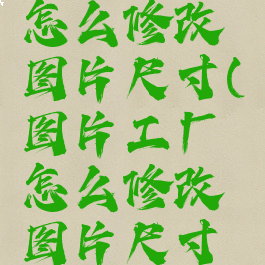 怎么修改
图片尺寸(
图片工厂
怎么修改
图片尺寸